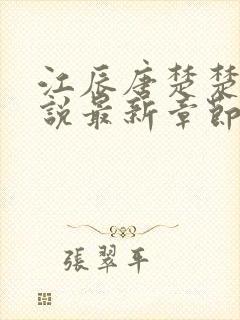 江辰唐楚楚
說最新章節
張翠平